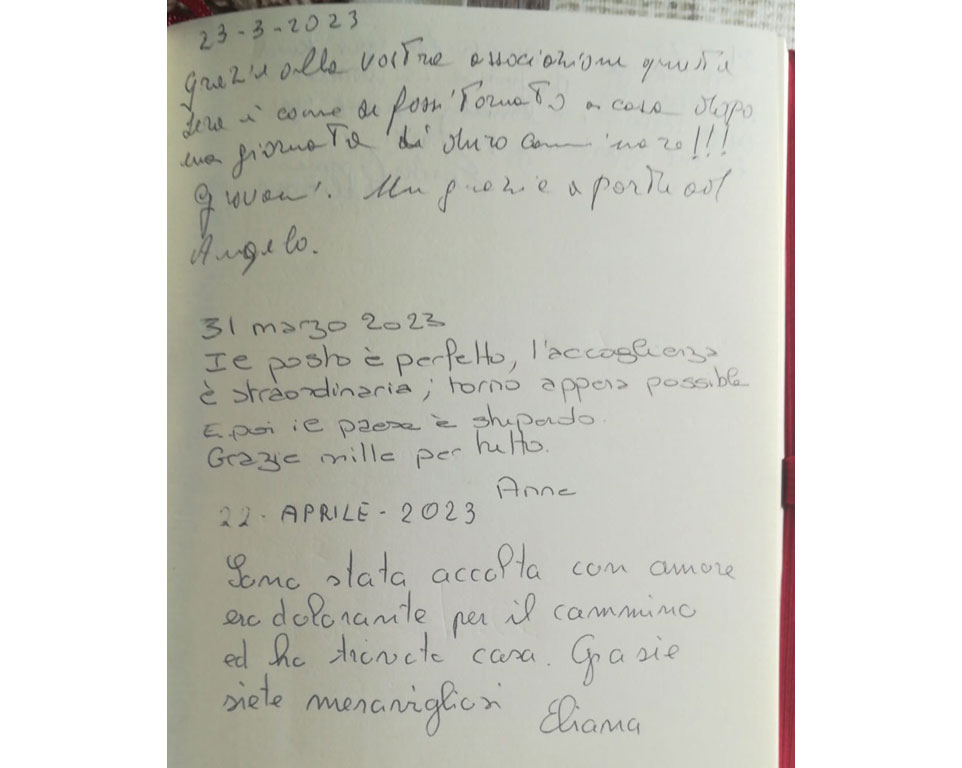 23-3-2023
Grazie alla vostra associazione questa
sera è come se fossi tornato a casa dopo
una giornata di duro camminare!!!
Giovanni. Un grazie a parte ad
Angelo.
31 marzo 2023
Il posto è perfetto, l'accoglienza
è straordinaria; torno appena possibile
E poi il paese è stupendo.
Grazie mille per tutto.
Anne
22-APRILE-2023
Sono stata accolta con amore
ero dolorante per il cammino
ed ho trovato casa. Grasie
siete meravigliosi
Eliana